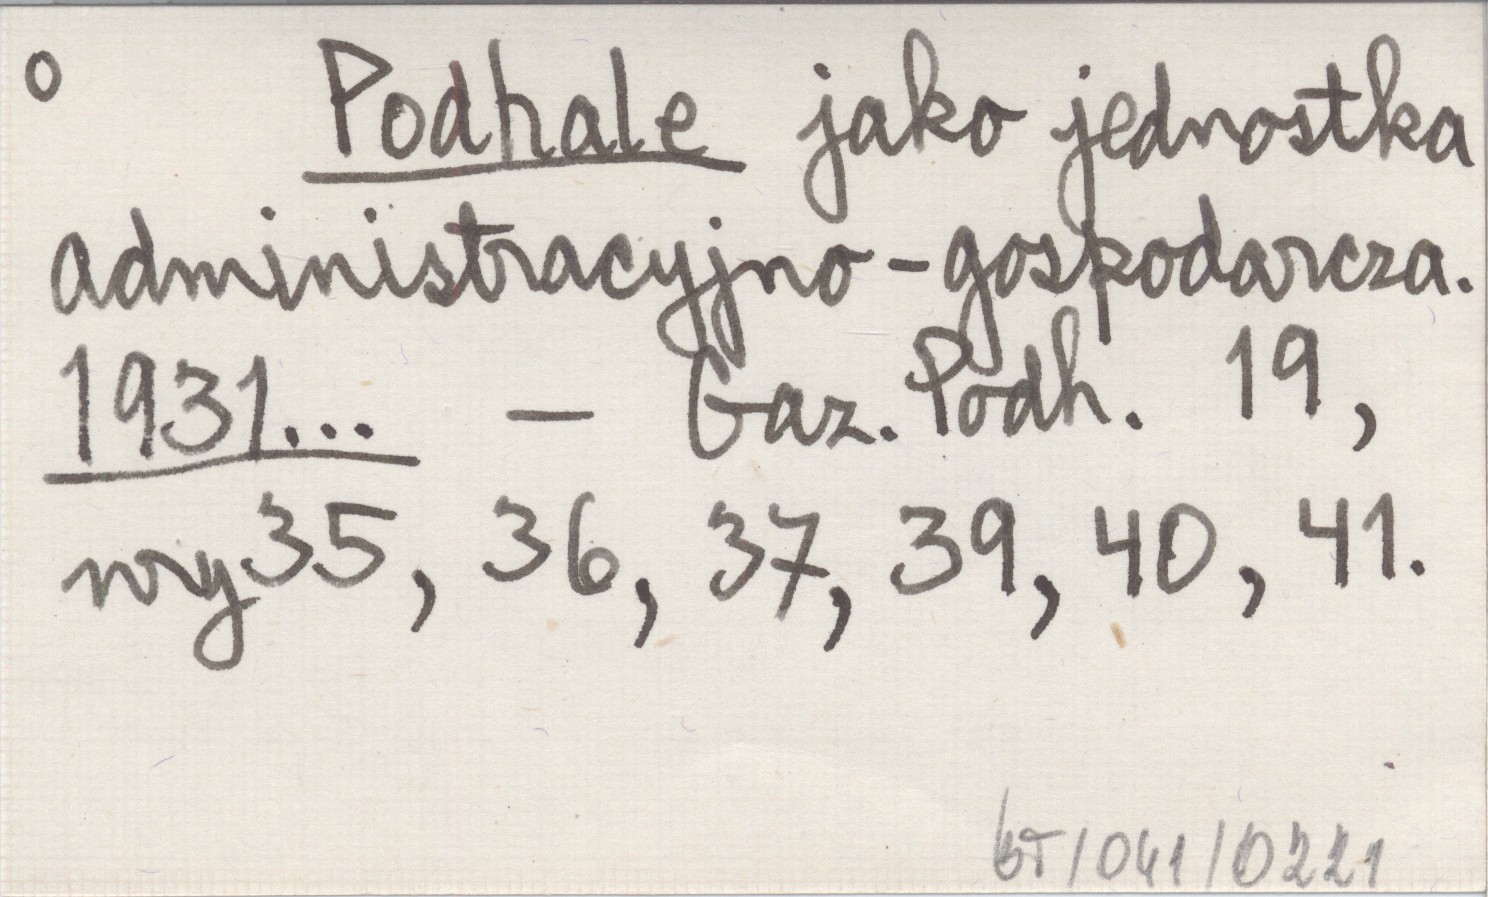 o Podhale jako jednostka
administracyjno-gospodarcza.
1931... — Gaz. Podh. 19,
nry 35, 36, 37, 39, 40, 41.
/041/0221